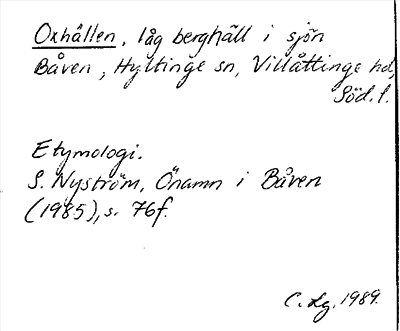 Oxhällen, låg berghäll i sjön
Båven, Hyltinge sn, Villåttinge hd,
Söd. l.
Etymologi.
S. Nyström, Önamn i Båven
(1985), s. 76f.
C. Lg. 1989.